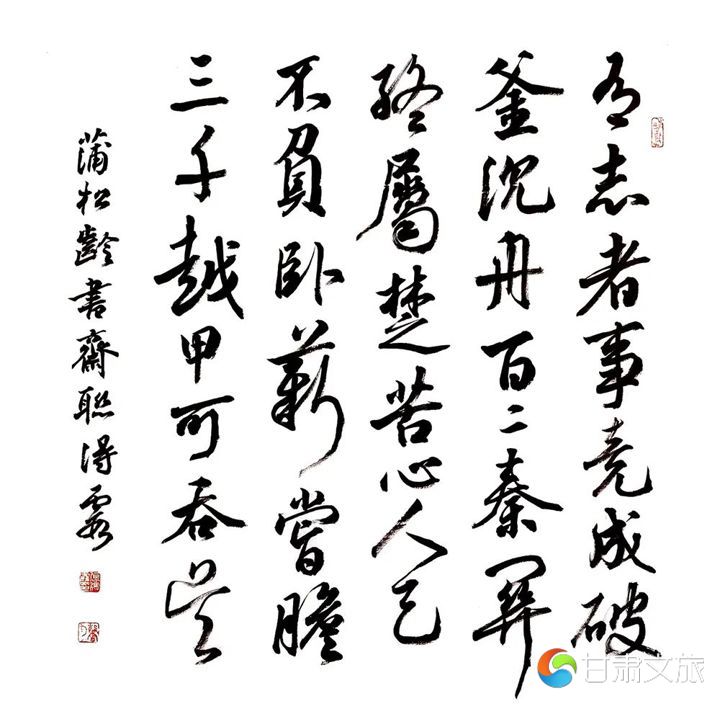 有志者事竟成破
釜沉舟百二秦關
終屬楚苦心人天
不負臥薪嘗膽
三千越甲可吞吴
蒲松齡書齋聯得霞
甘肃文旅